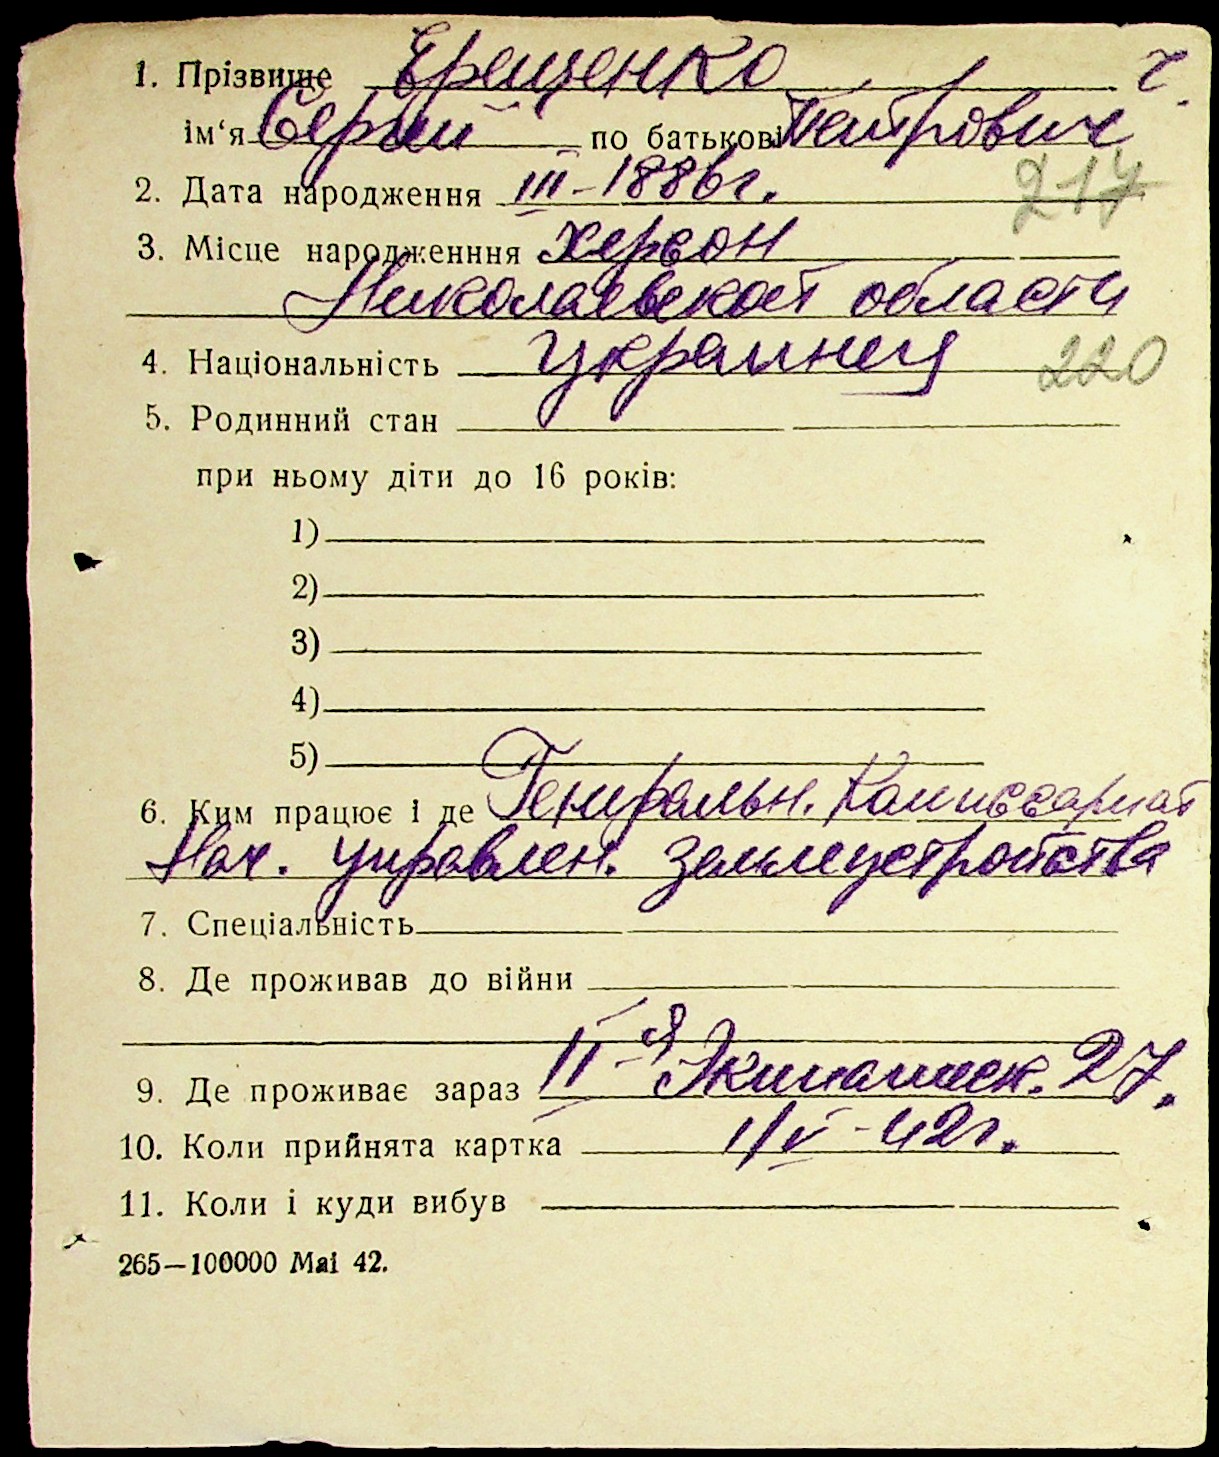 1. Прізвище Ерещенко г.
ім‘я Сергий по батькові Петрович
2. Дата народження III – 1886 г. 217
3. Місце народженння Херсон
Николаевской области
4. Національність украинец 220
5. Родинний стан
при ньому діти до 16 років:
1)
2)
3)
4)
5)
6. Ким працює і де Генеральн. Комиссариат
Нач. управлен. землеустройства
7. Спеціальність
8. Де проживав до війни
9. Де проживає зараз II-я 27.
10. Коли прийнята картка 1/V - 42 г.
11. Коли і куди вибув
265—100000 Mai 42.